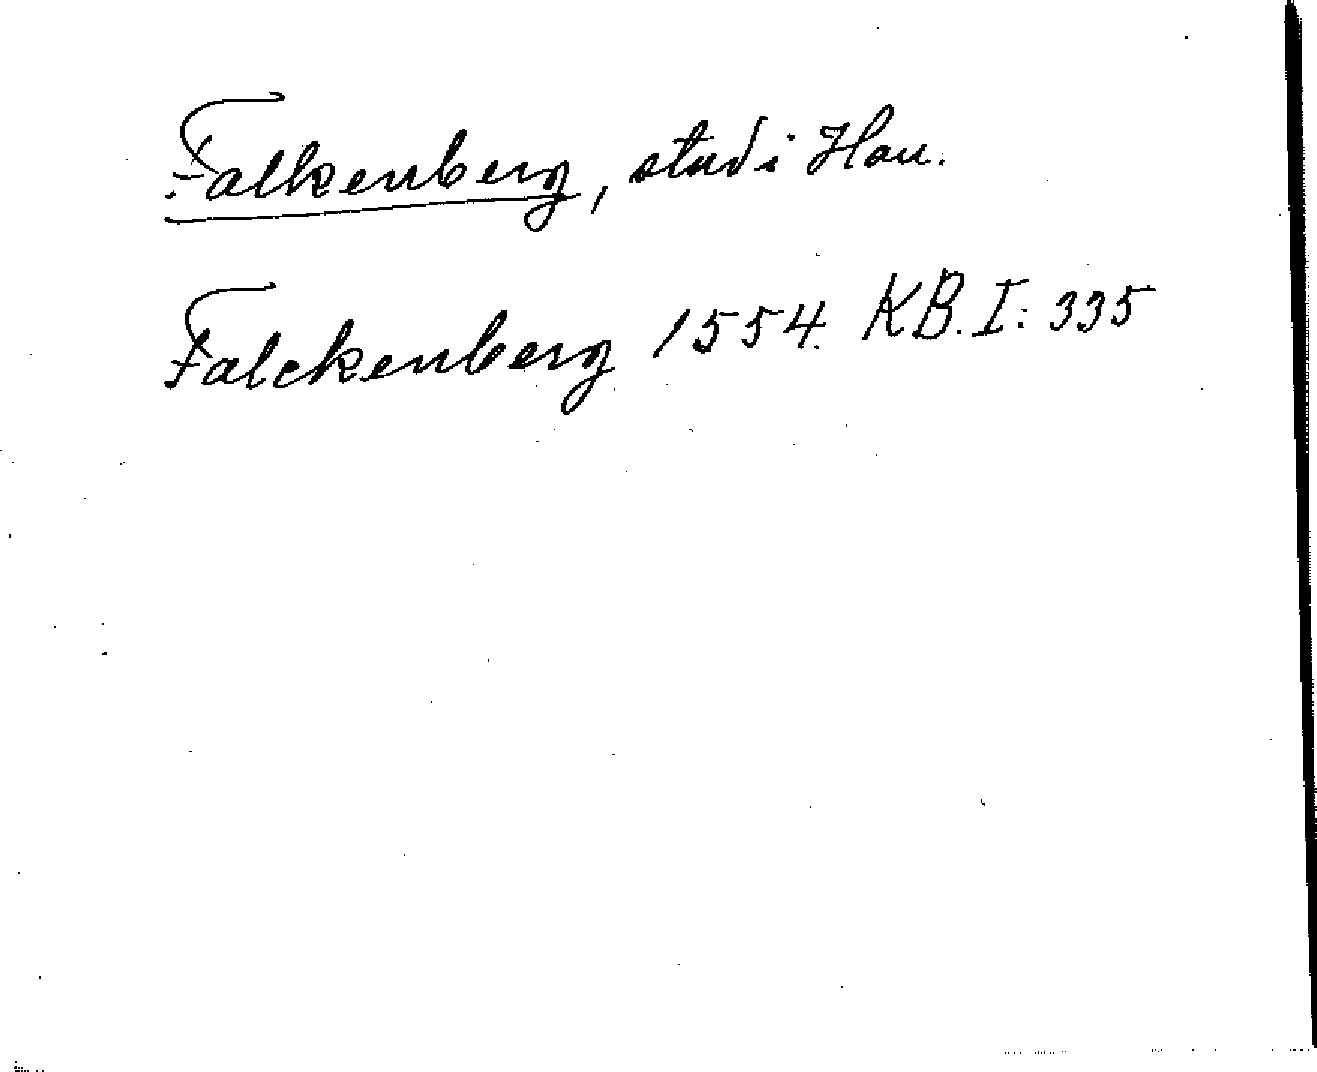 Falkenberg, stad i Hall.
Falckenberg 1554. KB. I: 335